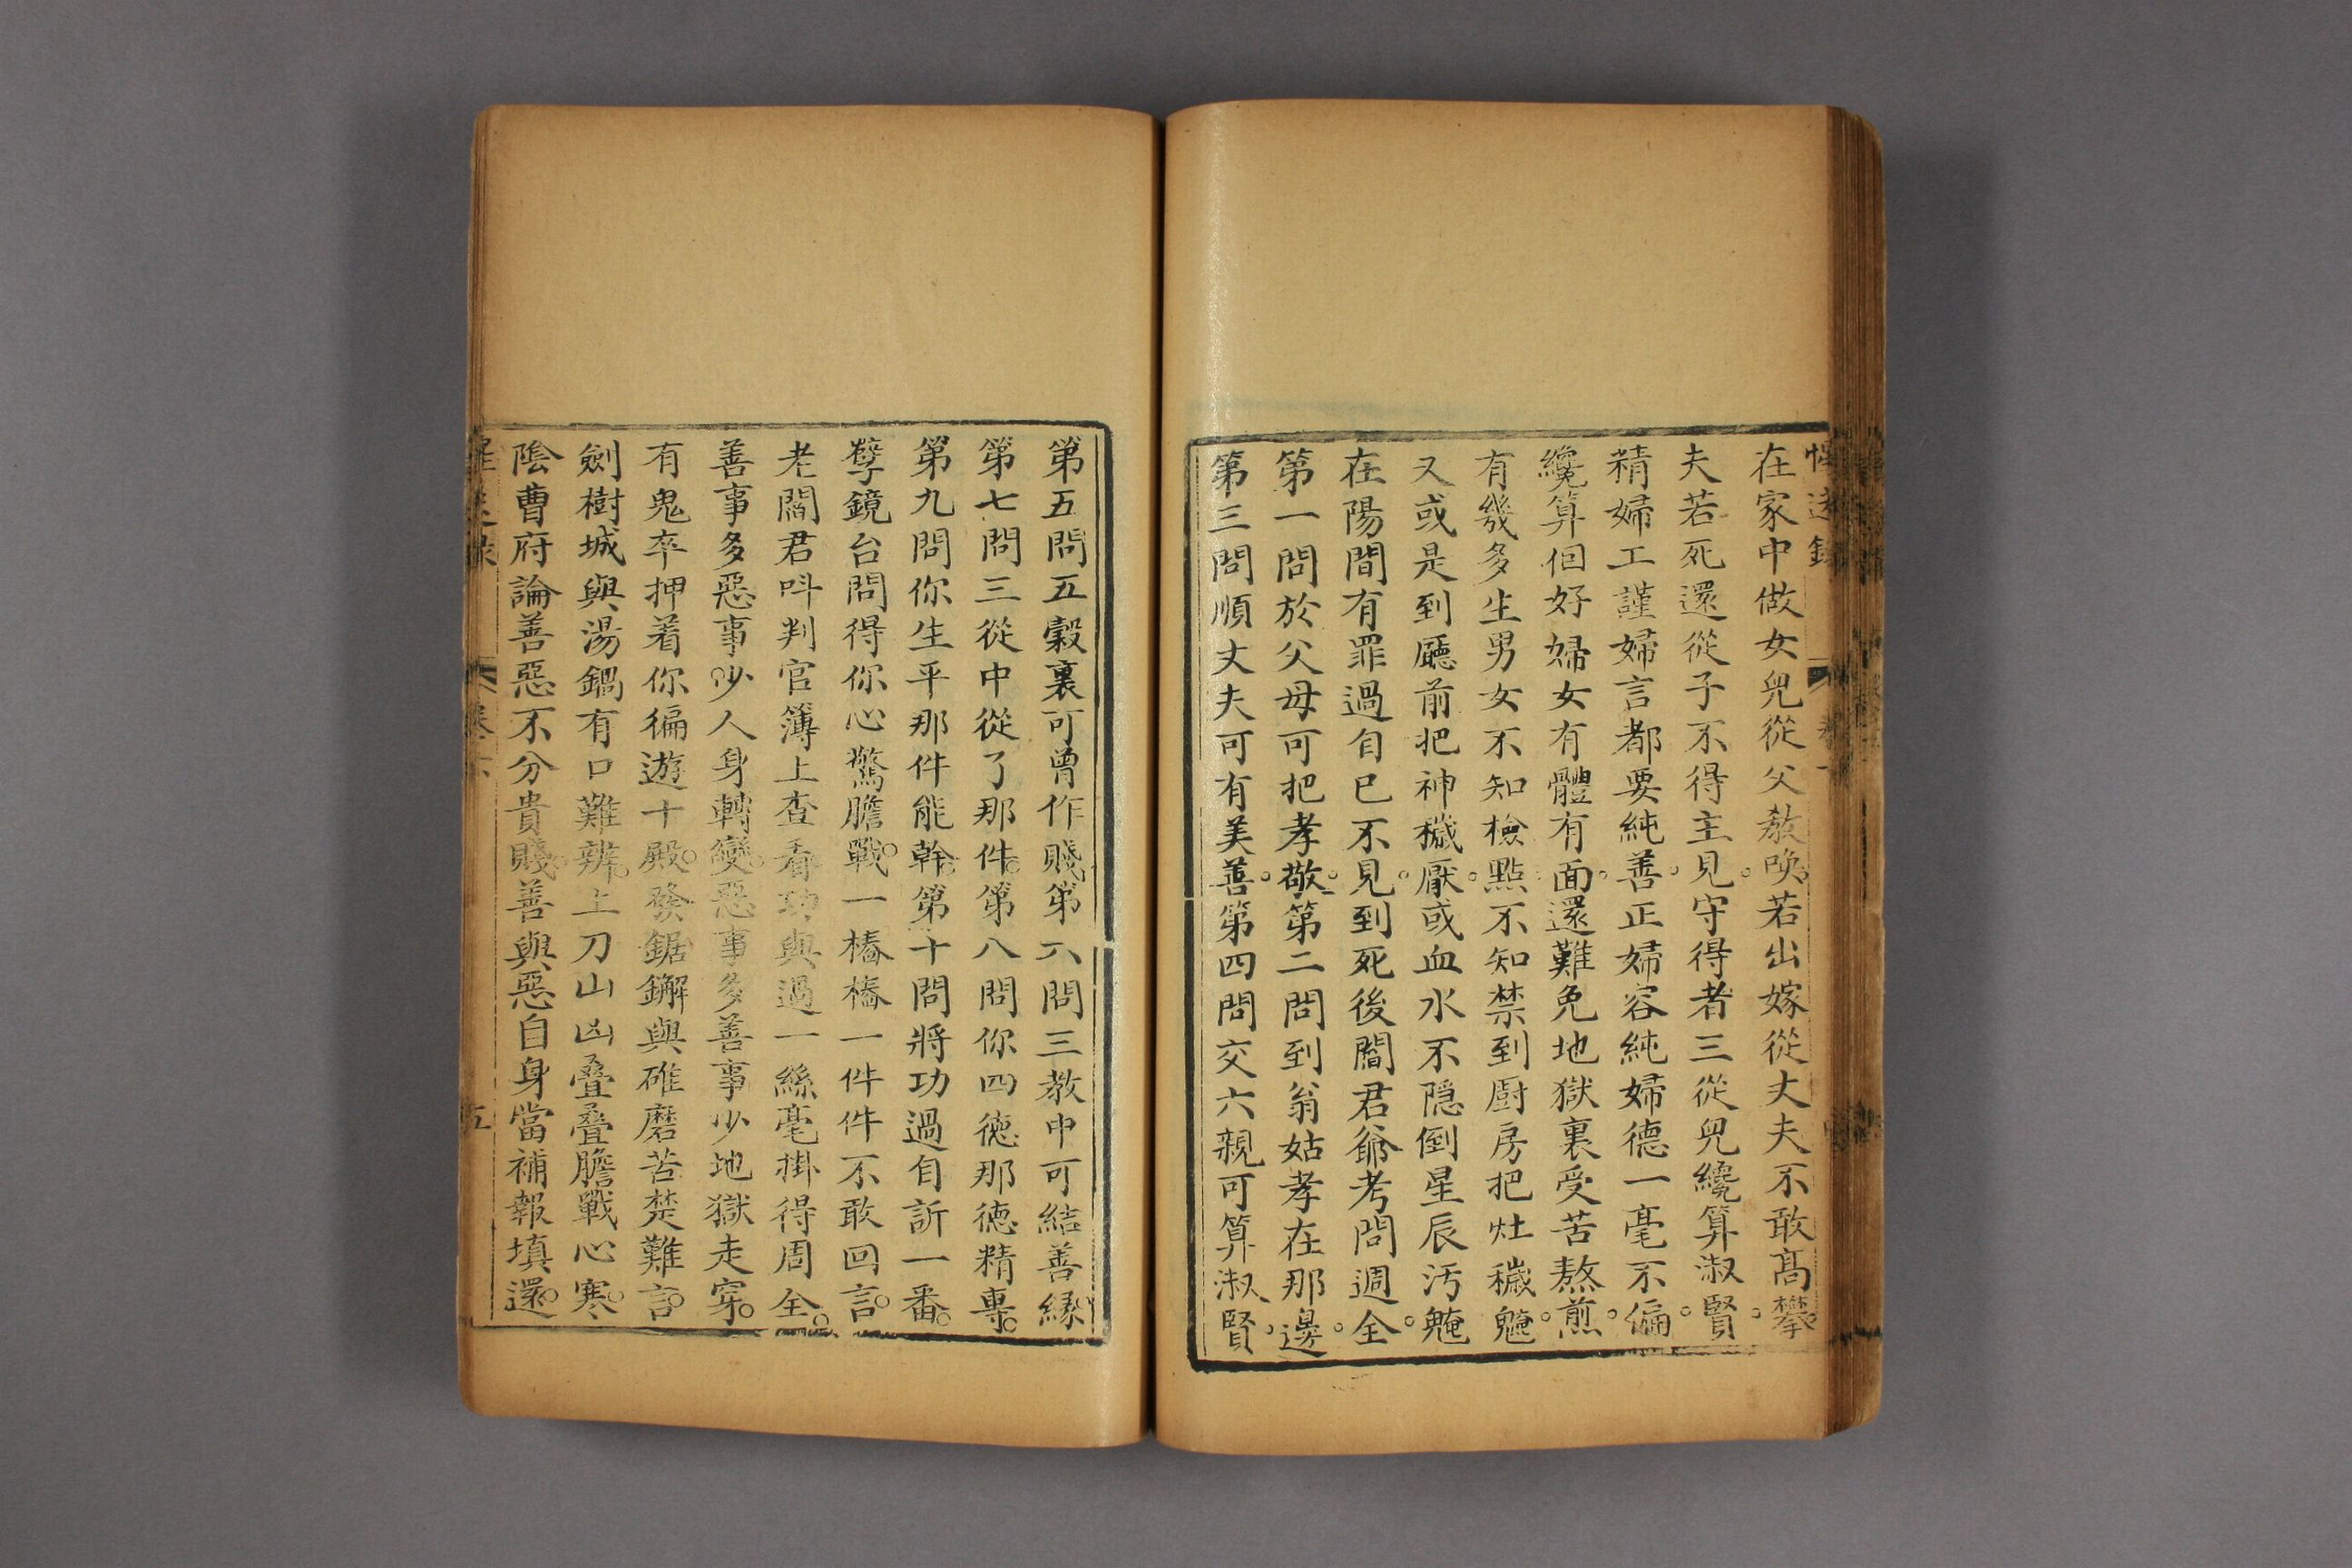 在家中做女兒從父教喚若出嫁從丈夫不敢高攀
夫若死還從子不得主見守得者三從兒纔算淑賢
精婦工謹婦言都要純善正婦容純婦德一毫不偏
纔算個好婦女有體有面還難免地獄裏受苦熬煎
有幾多生男女不知檢點不知禁到廚房把灶穢魒
又或是到廳前把神穢厭或血水不隱倒星辰污魒
在陽間有罪過自己不見到死後閻君爺考問週全
第一問於父母可把孝敬第二問到翁姑孝在那邊
第三問順丈夫可有美善第四問交六親可算淑賢
第五問五穀裏可曾作賤第六問三教中可結善緣
第七問三從中從了那件第八問你四德那德精專
第九問你生平那件能幹第十問將功過自訴一番
孽鏡台問得你心驚膽戰一樁樁一件件不敢回言
老閻君呌判官簿上查看功與過一絲毫掛得周全
善事多惡事少人身轉變惡事多善事少地獄走穿
有鬼卒押着你徧遊十殿發鋸鐦與碓磨苦楚難言
劍樹城與湯鍋有口難辨上刀山凶叠叠膽戰心寒
陰曹府論善惡不分貴賤善與惡自身當補報填還
五